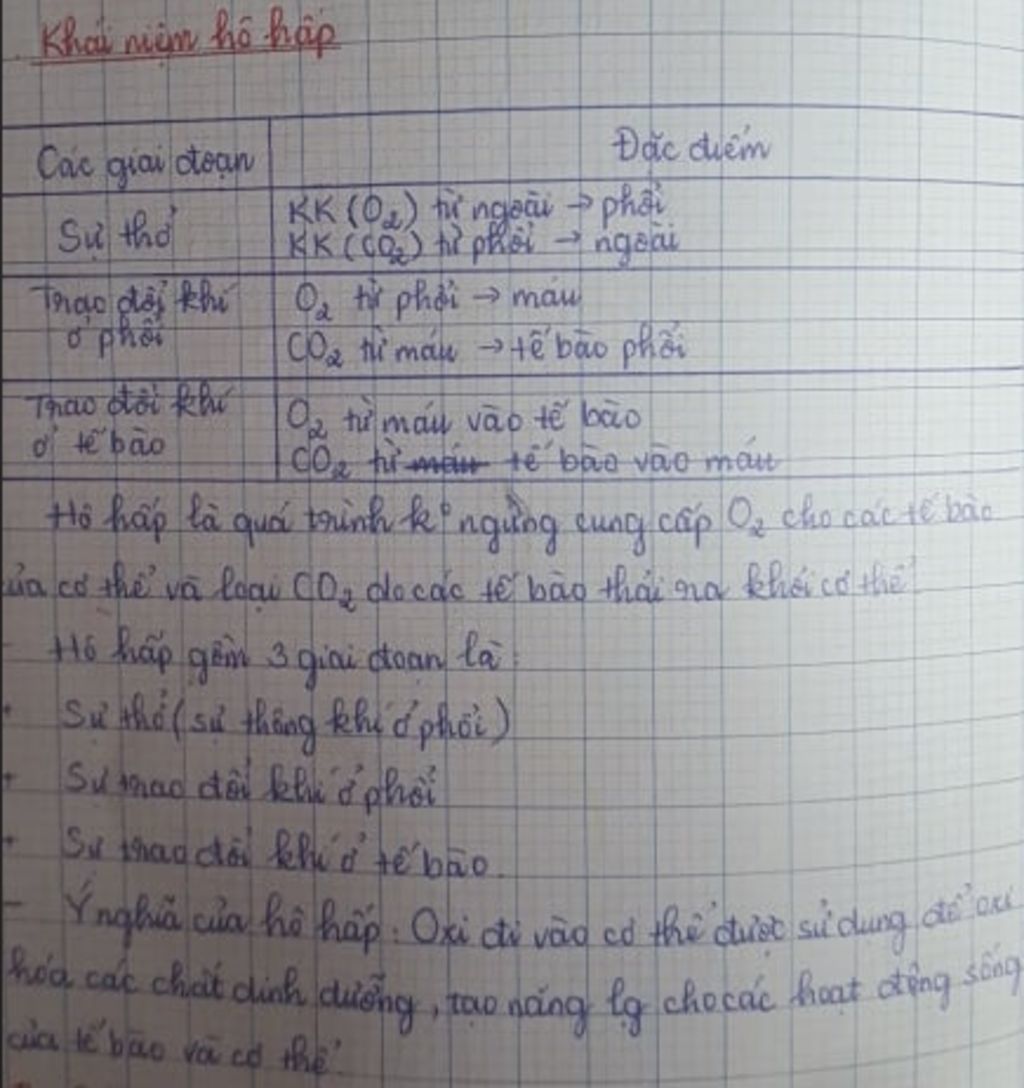 Khái niệm hô hấp
Các giai đoạn Đặc điểm
Sự thở KK (O2) từ ngoài → phổi
KK (CO2) từ phổi → ngoài
Trao đổi khí ở phổi O2 từ phổi → máu
CO2 từ máu → tế bào phổi
Trao đổi khí ở tế bào O2 từ máu vào tế bào
CO2 từ máu tế bào vào máu
Hô hấp là quá trình k° ngừng cung cấp O2 cho các tế bào
của cơ thể và loại CO2 do các tế bào thải ra khỏi cơ thể
- Hô hấp gồm 3 giai đoạn là:
+ Sự thở (sự thông khí ở phổi)
+ Sự trao đổi khí ở phổi
+ Sự trao đổi khí ở tế bào.
- Ý nghĩa của hô hấp: Oxi đi vào cơ thể được sử dụng để oxi
hóa các chất dinh dưỡng, tạo năng lg cho các hoạt động sống
của tế bào và cơ thể.